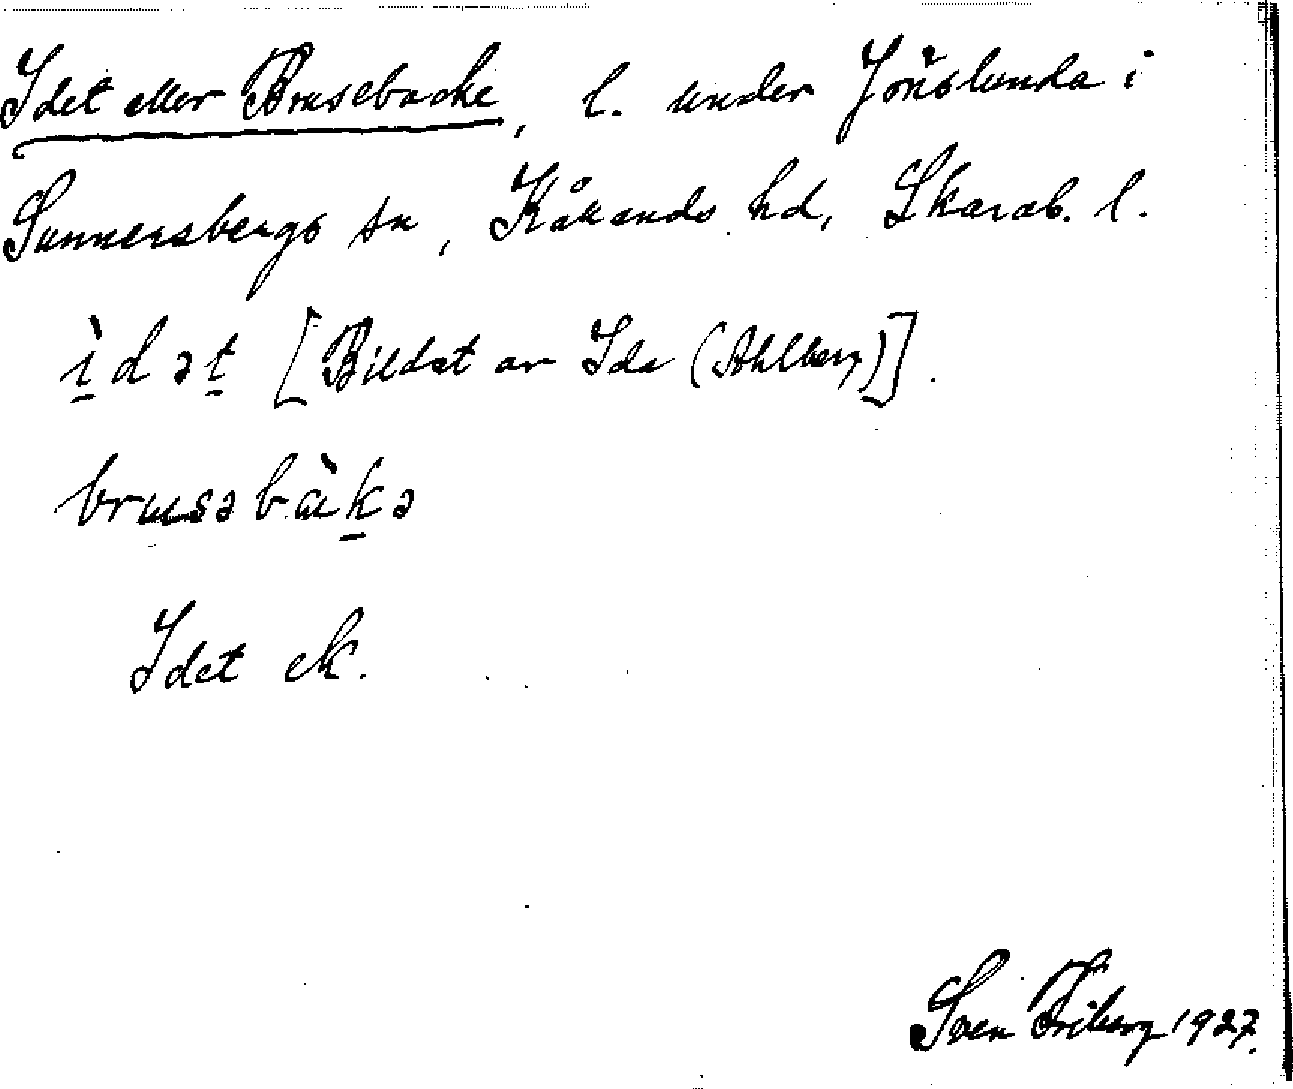 Idet eller Brusebacke, l. under Jönslunda i
Sunnersbergs sn, Kållands hd, Skarab. l.
ìdət [Bildat av Ida (Ahlberg)].
brusəbàkə
Idet ek.
Sven Friberg 1927.